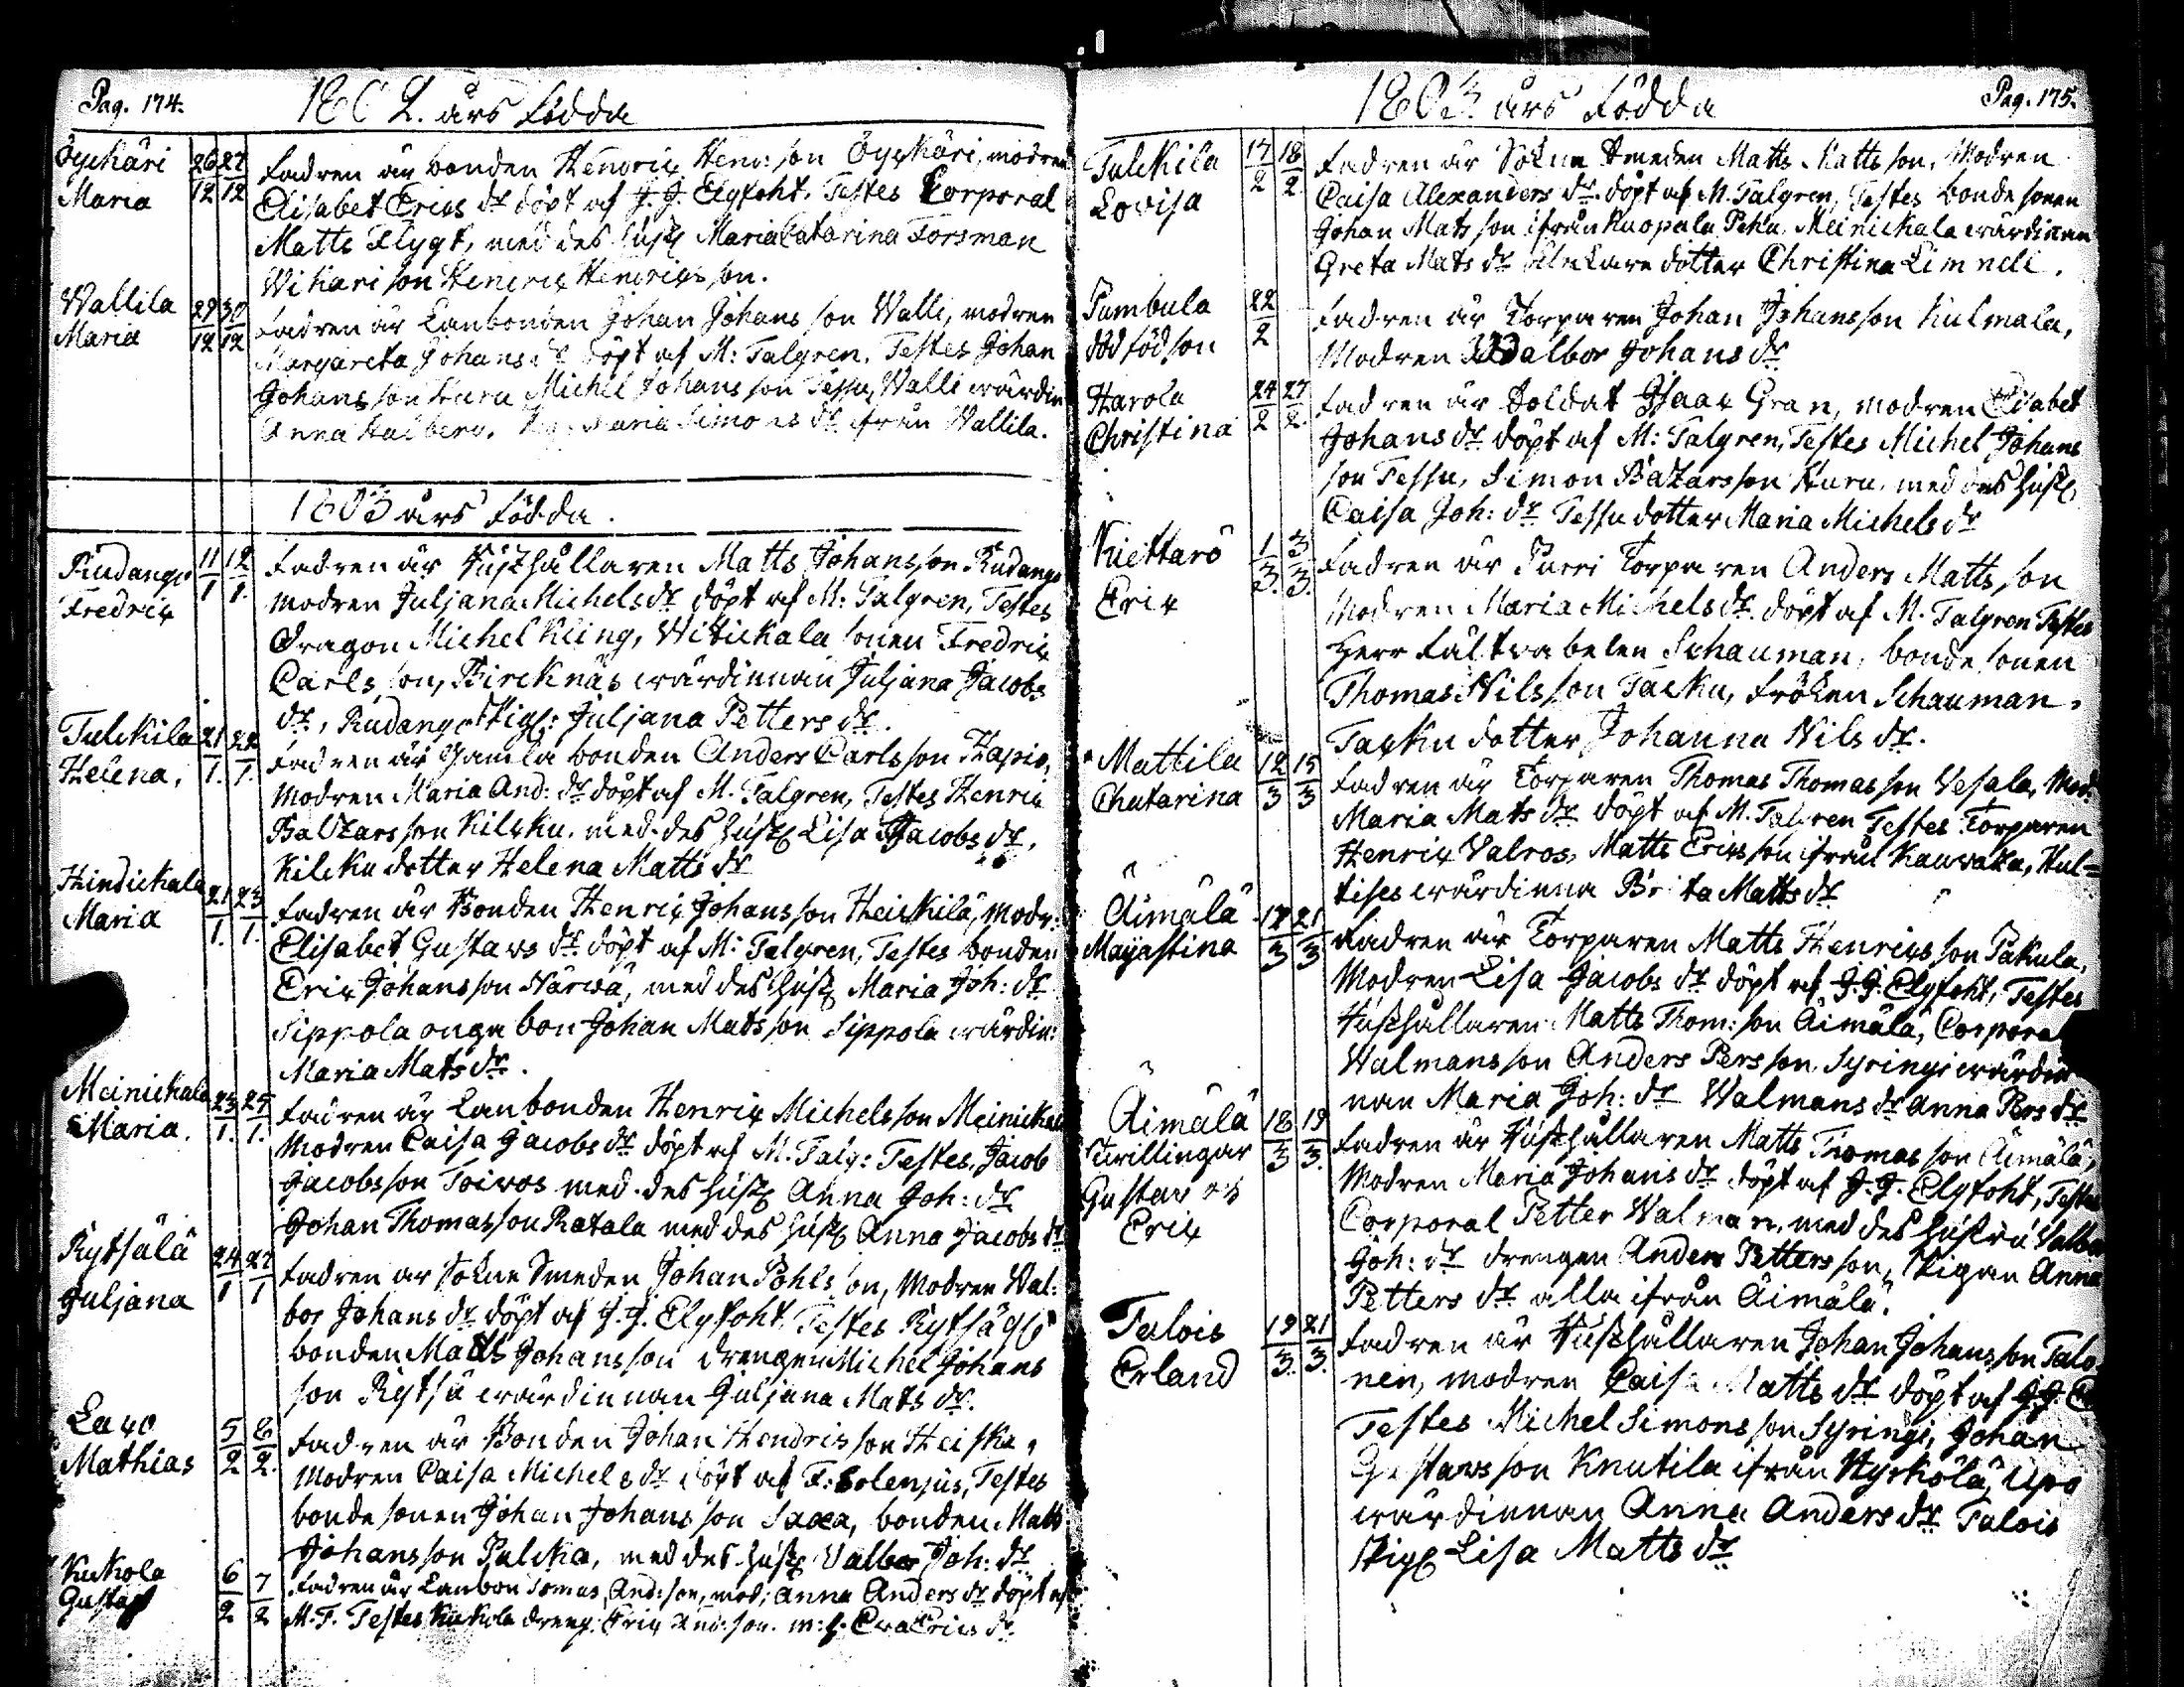 Pag. 174.
1802. års Födda
Öyskäri Maria 26/12 27/12 Fadren är bonden Henric Hend: son Öyskäri, modren
Elisabet Erics dr döpt af J. J. Elgfoht. Testes Corporal
Matts Flygt, med des hust Maria Catarina Forsman
Wikari son Henric Henricsson.
Wallila Maria 29/12 30/12 Fadren är Lanbonden Johan Johansson Walli, modren
Margareta Johans dr döpt af M: Talgren. Testes Johan
Johansson Huru Michel Johansson Tessu, Walli wärdin
Anna Halberg. Maria Simons dr ifrån Wallila.
1803 års Födda.
Rudango Fredric 11/1 12/1. Fadren är Rusthållaren Matts Johansson Rudango
modren Juljana Michels dr döpt af M: Talgren, Testes
Dragon Michel Kling, Witickala sonen Fredric
Carlsson, Bircknäs wärdinnan Juljana Jacobs
dr, Rudango Pig: Juljana Petters dr.
Tulckila Helena, 21/1. 22/1. Fadren är Gamla bonden Anders Carlsson Hapio,
Modren Maria And: dr döpt af M. Talgren, Testes Henric
Baltzarsson Kilcku, med des hust Lisa Jacobs dr,
Kilcku dotter Helena Matts dr
Hindickala Maria 21/1. 23/1. Fadren är Bonden Henric Johansson Heickilä, Modr:
Elisabet Gustavs dr döpt af M: Talgren, Testes bonden
Eric Johansson Närwä, med des hust Maria Joh: dr
Sippola onga bon Johan Matsson Sippola wärdin:
Maria Mats dr.
Meinickala Maria. 23/1. 25/1. Fadren är Lanbonden Henric Michelsson Meinickal
Modren Caisa Jacobs dr döpt af M. Talg: Testes, Jacob
Jacobsson Toivos med des hust Anna Joh: dr
Johan Thomasson Ratala med des hust Anna Jacobs dr
Rytsälä Juljana 24/1 27/1 Fadren är Sokne Smeden Johan Pohlsson, Modren Wal:
bor Johans dr döpt af J. J. Elgfoht. Testes Rytsä
bonden Matts Johansson drengen Michel Johans
son Rytsä wärdinnan Juljana Mats dr.
Laxo Mathias 5/2 8/2. Fadren är Bonden Johan Hendrisson Heiska,
Modren Caisa Michels dr döpt af F: Bolenjus, Testes
bonde sonen Johan Johansson Saxa, bonden Matts
Johansson Pulcka, med des hust Walbor Joh: dr
Kukola Gustaf 6/2 7/2 Fadren är Lanbon Tomas And: son, mod; Anna Anders dr döpt af
M. T. Testes Kukola dreng: Eric And: son. m: h. Eva Erics dr
Pag. 175.
1803. års Födda
Tulckila Lovisa 17/2 18/2. Fadren är Sokne Smeden Matts Mattsson, Modren
Caisa Alexanders dr. döpt af M. Talgren, Testes bonde sonen
Johan Matsson ifrån Kuopala Pehu, Meinickala wärdinnan
Greta Mats dr dotter Christina Limnell.
Pambula död föd son 22/2 Fadren är Torparen Johan Johansson Kulmala,
Modren Walbor Johans dr
Harola Christina 24/2 27/2. Fadren är Soldat Isaac Gran, modren Elisabet
Johans dr döpt af M: Talgren, Testes Michel Johans
son Tessu, Simon Baltzarsson Huru, med des hust
Caisa Joh: dr Tessu dotter Maria Michels dr
Kiettarö Eric 1/3. 3/3. Fadren är Purri Torparen Anders Mattsson
Modren Maria Michels dr. döpt af M. Talgren Testes
Herr Fältwabelen Schauman, bonde sonen
Thomas Nilsson Tacku, fröken Schauman,
Tacku dotter Johanna Nils dr.
Mattila Chatarina 12/3 15/3 Fadren är Torparen Thomas Thomasson Vesala, Mod:
Maria Mats dr döpt af M. Talgren Testes Torparen
Henric Valros, Matts Ericsson ifrån Kauvaka, Hul=
tises wärdinna Brita Matts dr
Äimälä Mayastina 17/3 21/3 Fadren är Torparen Matts Henricsson Pakula,
Modren Lisa Jacobs dr döpt af J. J. Elgfoht, Testes
Rusthållaren Matts Thom: son Äimälä, Corporal
Walmansson Anders Persson, Syringi wärdin
nan Maria Joh: dr Walmans dr Anna Pers dr
Äimälä Twillingar Gustav och Eric 18/3 19/3. Fadren är Rusthållaren Matts Thomasson Äimälä,
Modren Maria Johans dr döpt af J. J. Elgfoht, Testes
Corporal Petter Walman, med des hustru Valbor
Joh: dr drengen Anders Pettersson, Pigan Anna
Petters dr alla ifrån Äimälä.
Talois Erland 19/3. 21/3. Fadren är Rusthållaren Johan Johansson Talo
nen, modren Caisa Matts dr döpt af J. J. E
Testes Michel Simonsson Syringi, Johan
Gustavsson Knutila ifrån Hyrkölä, Upo
wärdinnan Anna Anders dr Talois
Pig Lisa Matts dr